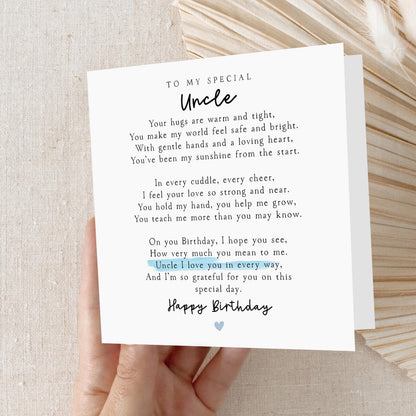 TO MY SPECIAL
Uncle
Your hugs are warm and tight,
You make my world feel safe and bright.
With gentle hands and a loving heart,
You've been my sunshine from the start.
In every cuddle, every cheer,
I feel your love so strong and near.
You hold my hand, you help me grow,
You teach me more than you may know.
On you Birthday, I hope you see,
How very much you mean to me.
Uncle I love you in every way,
And I'm so grateful for you on this
special day.
Happy Birthday